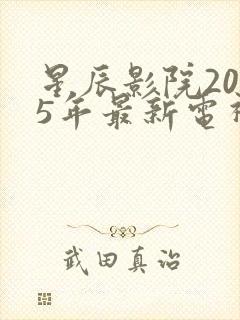 星辰影院20
5年最新電
武田真治